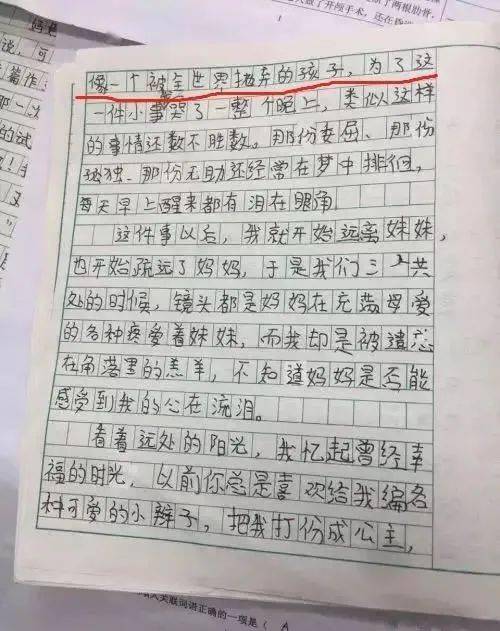 了开颅手术，还在昏
了两根肋骨，
说，可
篇作
的试
像一个被全世界抛弃的孩子，为了这
一件小事哭了一整个晚上，类似这样
的事情还数不胜数。那份委屈、那份
孤独、那份无助还经常在梦中排徊，
每天早上醒来都有泪在眼角
这件事以后，我就开始远离妹妹，
也开始疏远了妈妈，于是我们三人共
处的时候，镜头都是妈妈在充满母爱
的各种疼爱着妹妹，而我却是被遗忘
在角落里的羔羊，不知道妈妈是否能
感受到我的心在流泪。
看着远处的阳光，我忆起曾经幸
福的时光，以前你总是喜欢给我编各
种可爱的小辫子，把我打份成公主，
关联词讲正确的一项是（ A